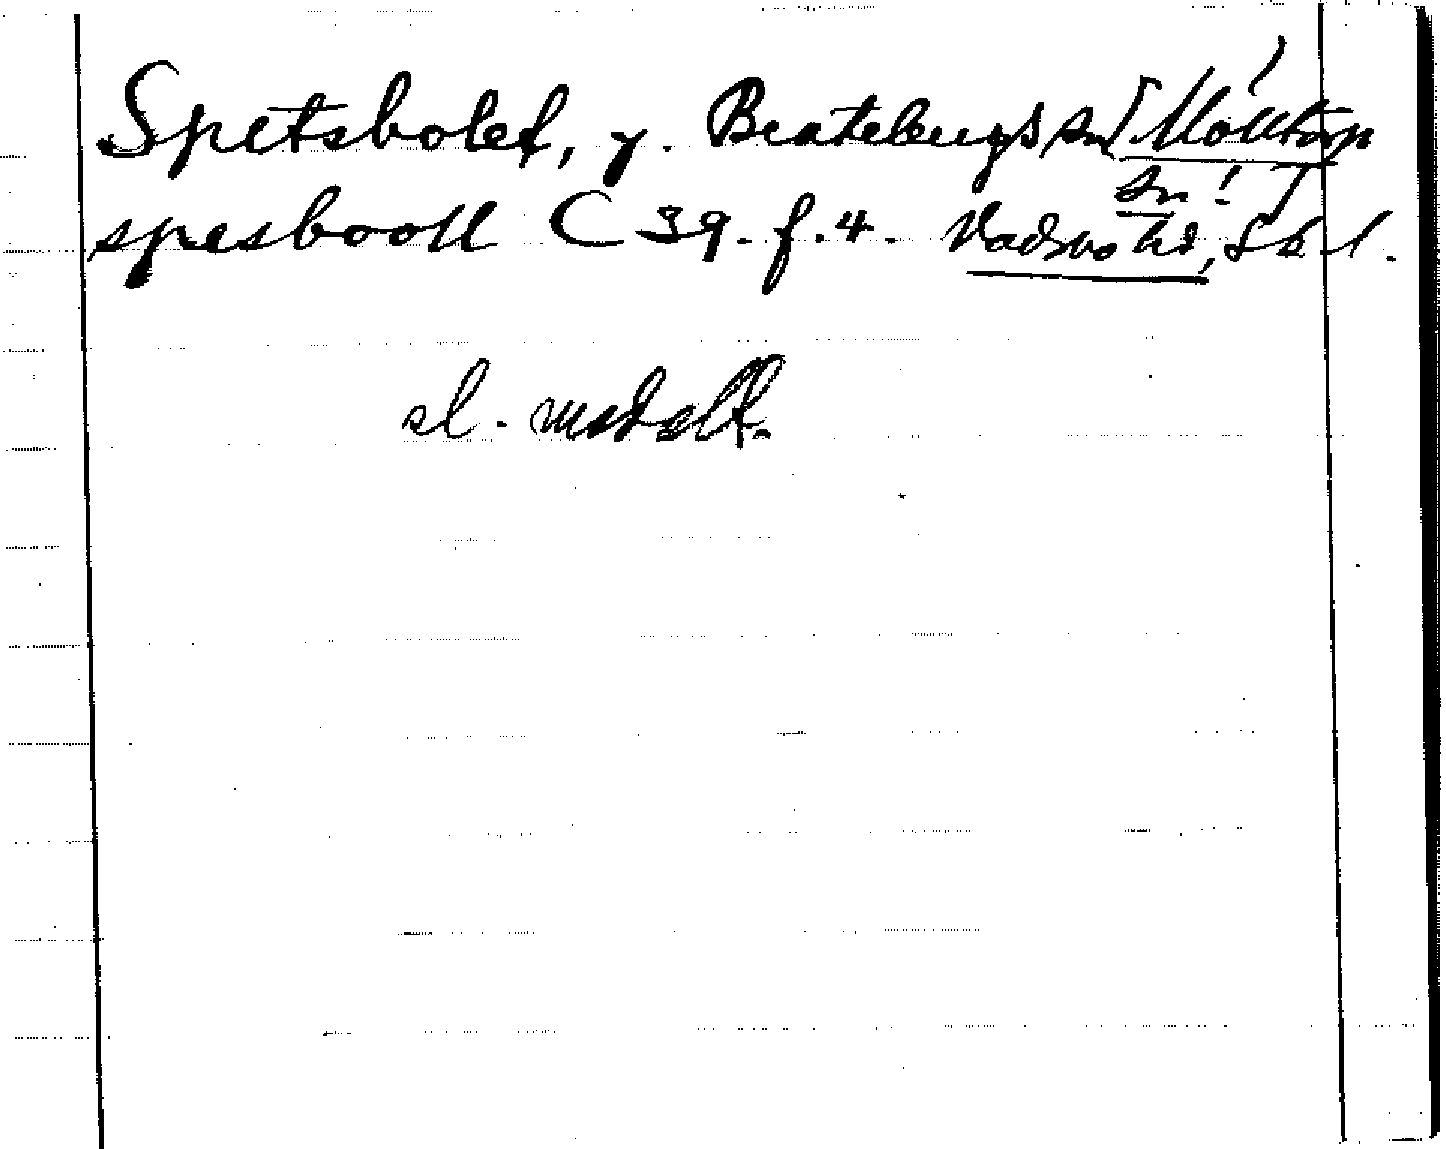 Spetsbolet, y. Beatebergs sn [Mölltorp
sn!]
spesbooll C 39. f. 4. Vadsbo hd, Skl.
sl. medelt.